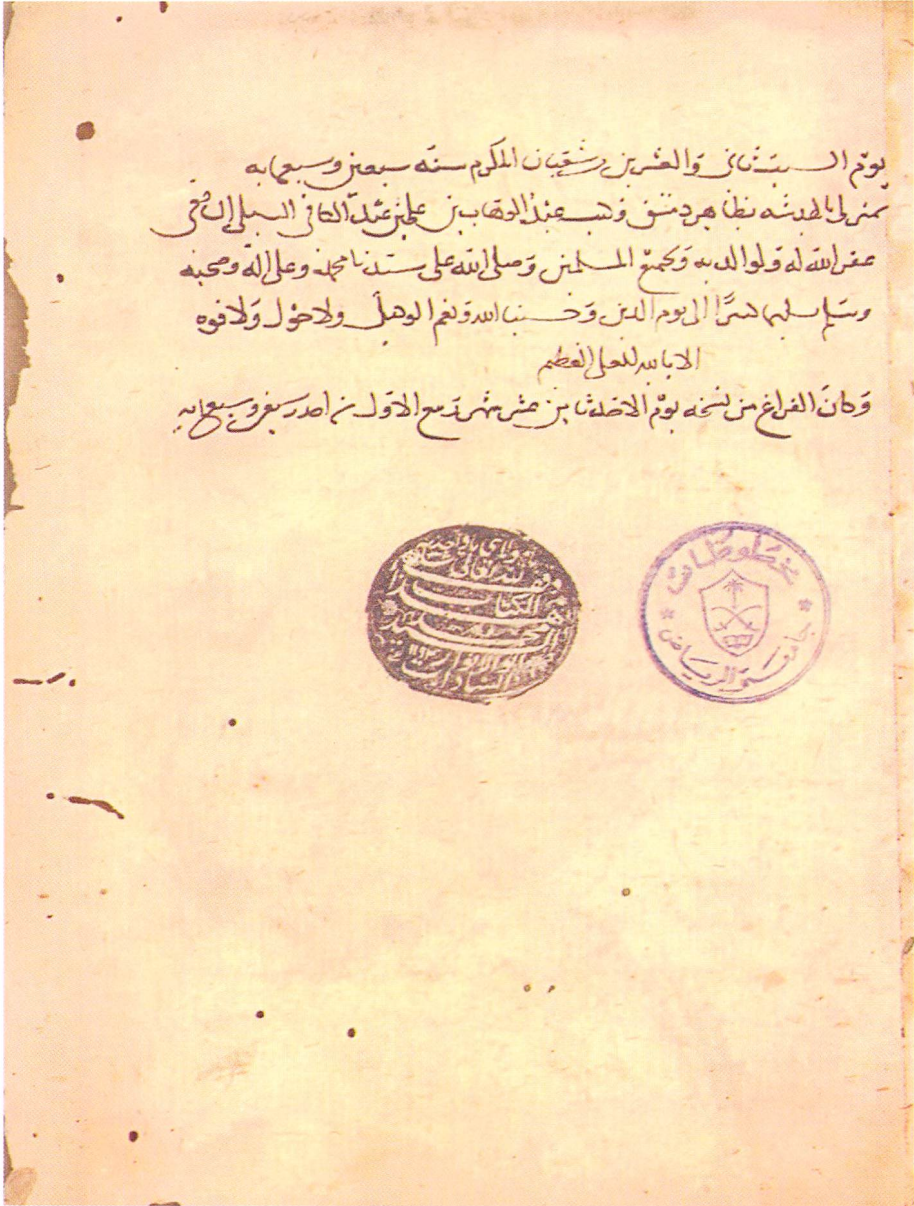 يوم السبت ثاني والعشرين من شعبان المكرم سنه سبعين وسبعمايه
بمنزلي بالدهشه بظاهر دمشق وكتب عبد الوهاب بن علي بن عبد الكافي السبكي الشافعي
غفر الله له ولوالديه ولجميع المسلمين وصلى الله على سيدنا محمد وعلى اله وصحبه
وسلم تسليما كثيرًا الى يوم الدين وحسبنا الله ونعم الوكيل ولا حول ولا قوه
الا بالله العلي العظيم
وكان الفراغ من نسخه يوم الاحد ثامن عشر شهر ربيع الاول من احد وسبعين وسبعمايه
الكتاب
محمد
مخطوطات
جامعة الرياض